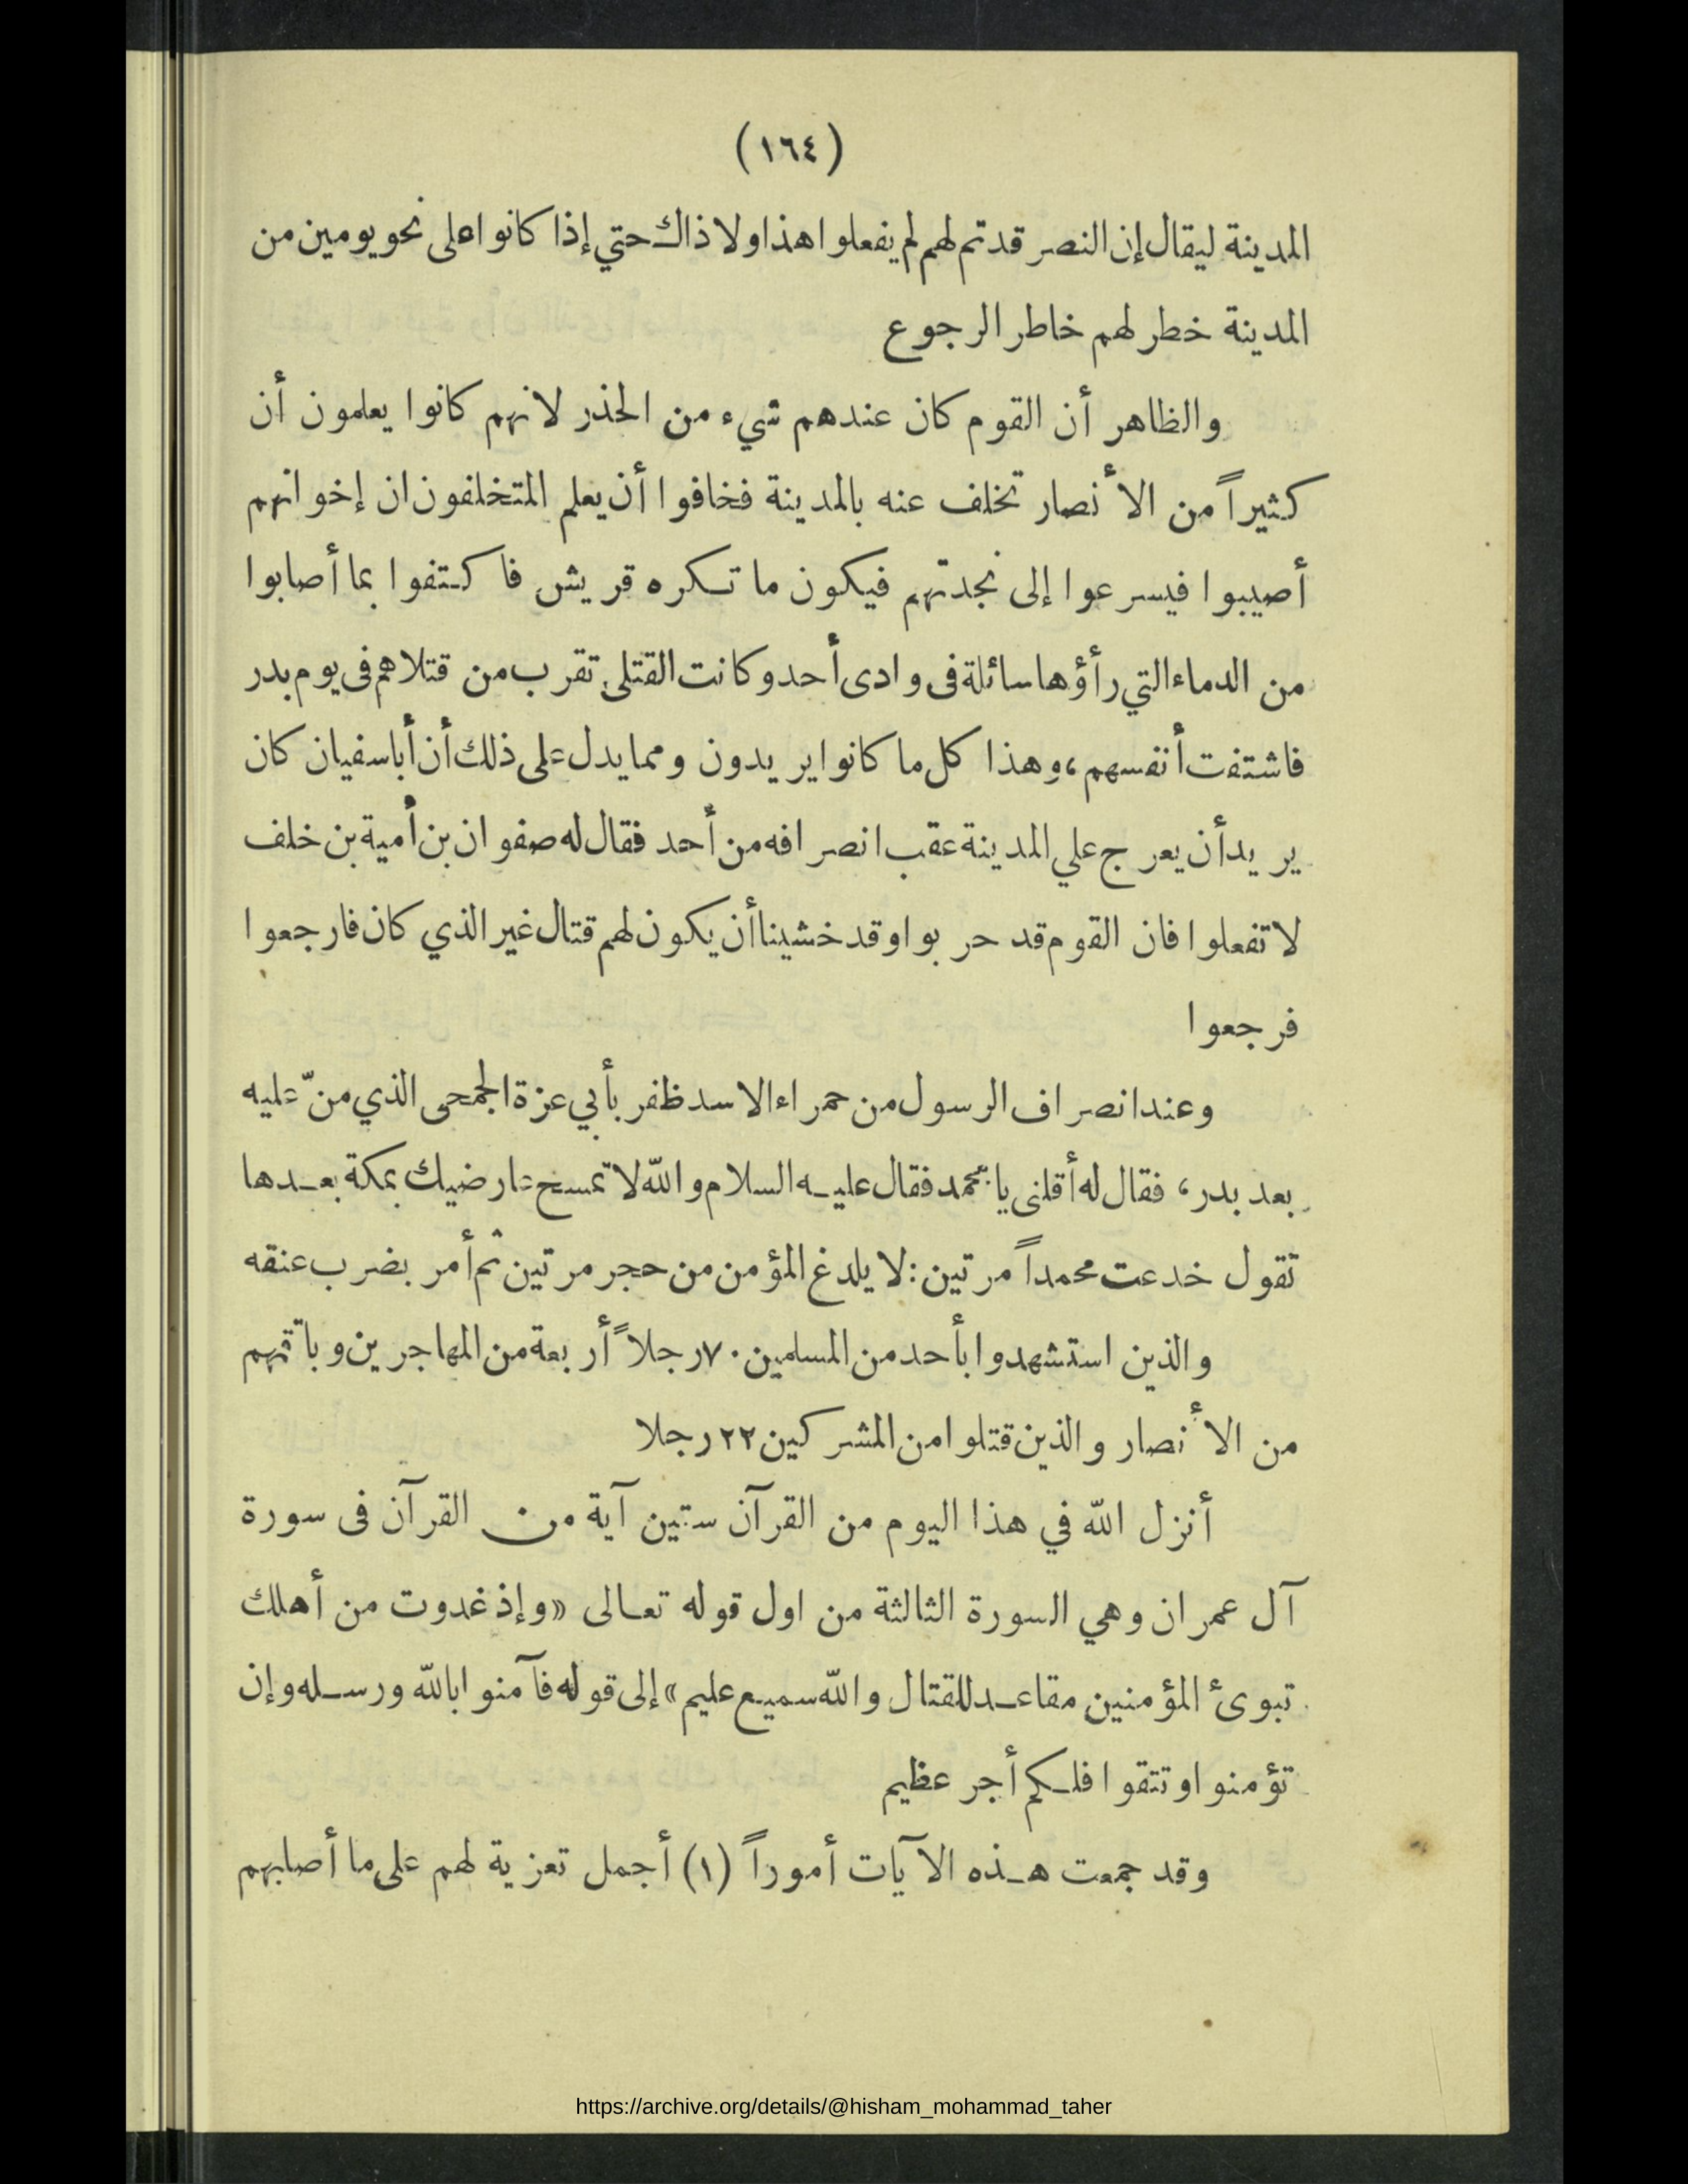 (١٦٤)
المدينة ليقال إن النصر قد تم لهم لم يفعلوا هذا ولا ذاك حتي إذا كانوا على نحو يومين من
المدينة خطر لهم خاطر الرجوع
والظاهر أن القوم كان عندهم شيء من الحذر لانهم كانوا يعلمون أن
كثيراً من الأنصار تخلف عنه بالمدينة فخافوا أن يعلم المتخلفون ان إخوانهم
أصيبوا فيسرعوا إلى نجدتهم فيكون ما تكره قريش فاكتفوا بما أصابوا
من الدماء التي رأؤها سائلة فى وادى أحد وكانت القتلى تقرب من قتلاهم فى يوم بدر
فاشتفت أنفسهم، وهذا كل ما كانوا يريدون ومما يدل على ذلك أن أبا سفيان كان
يريد أن يعرج علي المدينة عقب انصرافه من أحد فقال له صفوان بن أمية بن خلف
لا تفعلوا فان القوم قد حربوا وقد خشينا أن يكون لهم قتال غير الذي كان فارجعوا
فرجعوا
وعند انصراف الرسول من حمراء الاسد ظفر بأبي عزة الجمحى الذي منّ عليه
بعد بدر، فقال له أقلنى يا محمد فقال عليه السلام والله لا تمسح عارضيك بمكة بعدها
تقول خدعت محمداً مرتين: لا يلدغ المؤمن من حجر مرتين ثم أمر بضرب عنقه
والذين استشهدوا بأحد من المسلمين ٧٠ رجلاً أربعة من المهاجرين وباقيهم
من الأنصار والذين قتلوا من المشركين ٢٢ رجلا
أنزل الله في هذا اليوم من القرآن ستين آية من القرآن فى سورة
آل عمران وهي السورة الثالثة من اول قوله تعالى «وإذ غدوت من أهلك
تبوئ المؤمنين مقاعد للقتال والله سميع عليم» إلى قوله فآمنوا بالله ورسله وإن
تؤمنوا وتتقوا فلكم أجر عظيم
وقد جمعت هذه الآيات أموراً (١) أجمل تعزية لهم على ما أصابهم
https://archive.org/details/@hisham_mohammad_taher